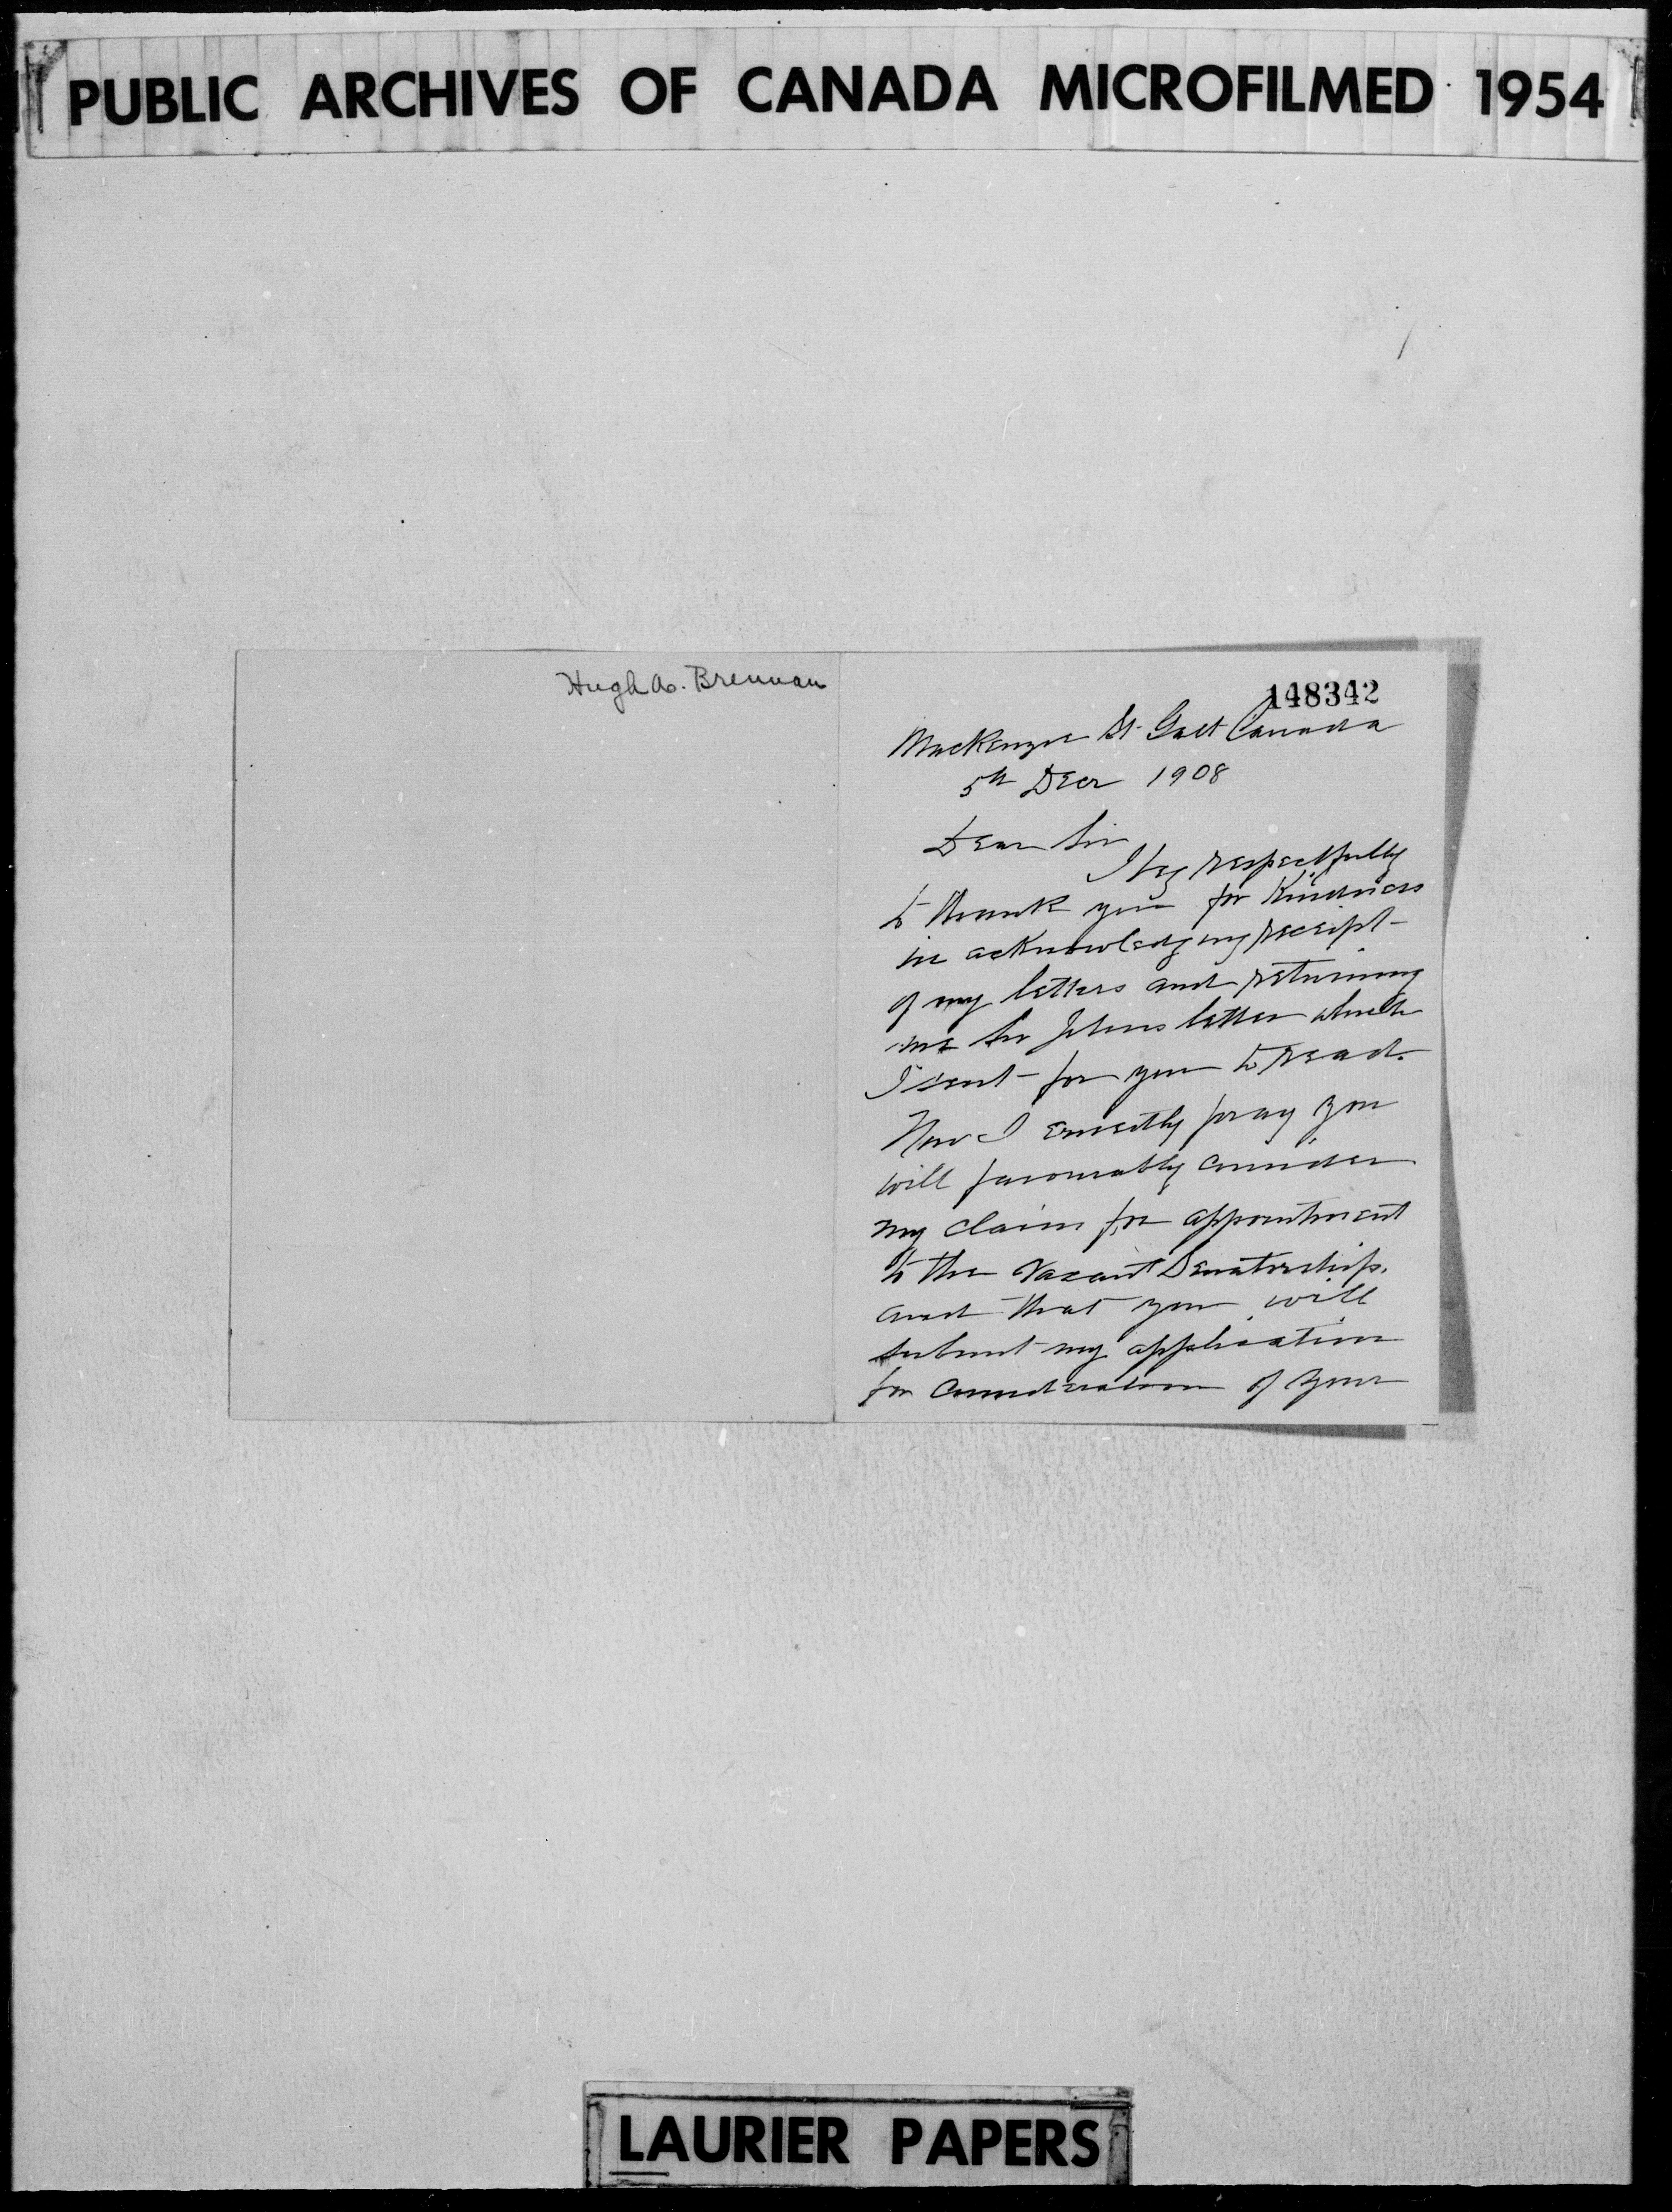 PUBLIC ARCHIVES OF CANADA MICROFILMED 1954
Hugh A. Brennan
148342
MacKenzie St. Galt Canada
5th Decr 1908
Dear Sir
I beg respectfully
to thank you for Kindness
in acknowledging receipt
of my letters and returning
me Sir Johns letter which
I sent for you to read.
Now I ernestly pray you
will favourably consider
my claim for appointment
to the Vacant Senatorship.
and that you will
submit my application
for consideration of your
LAURIER PAPERS